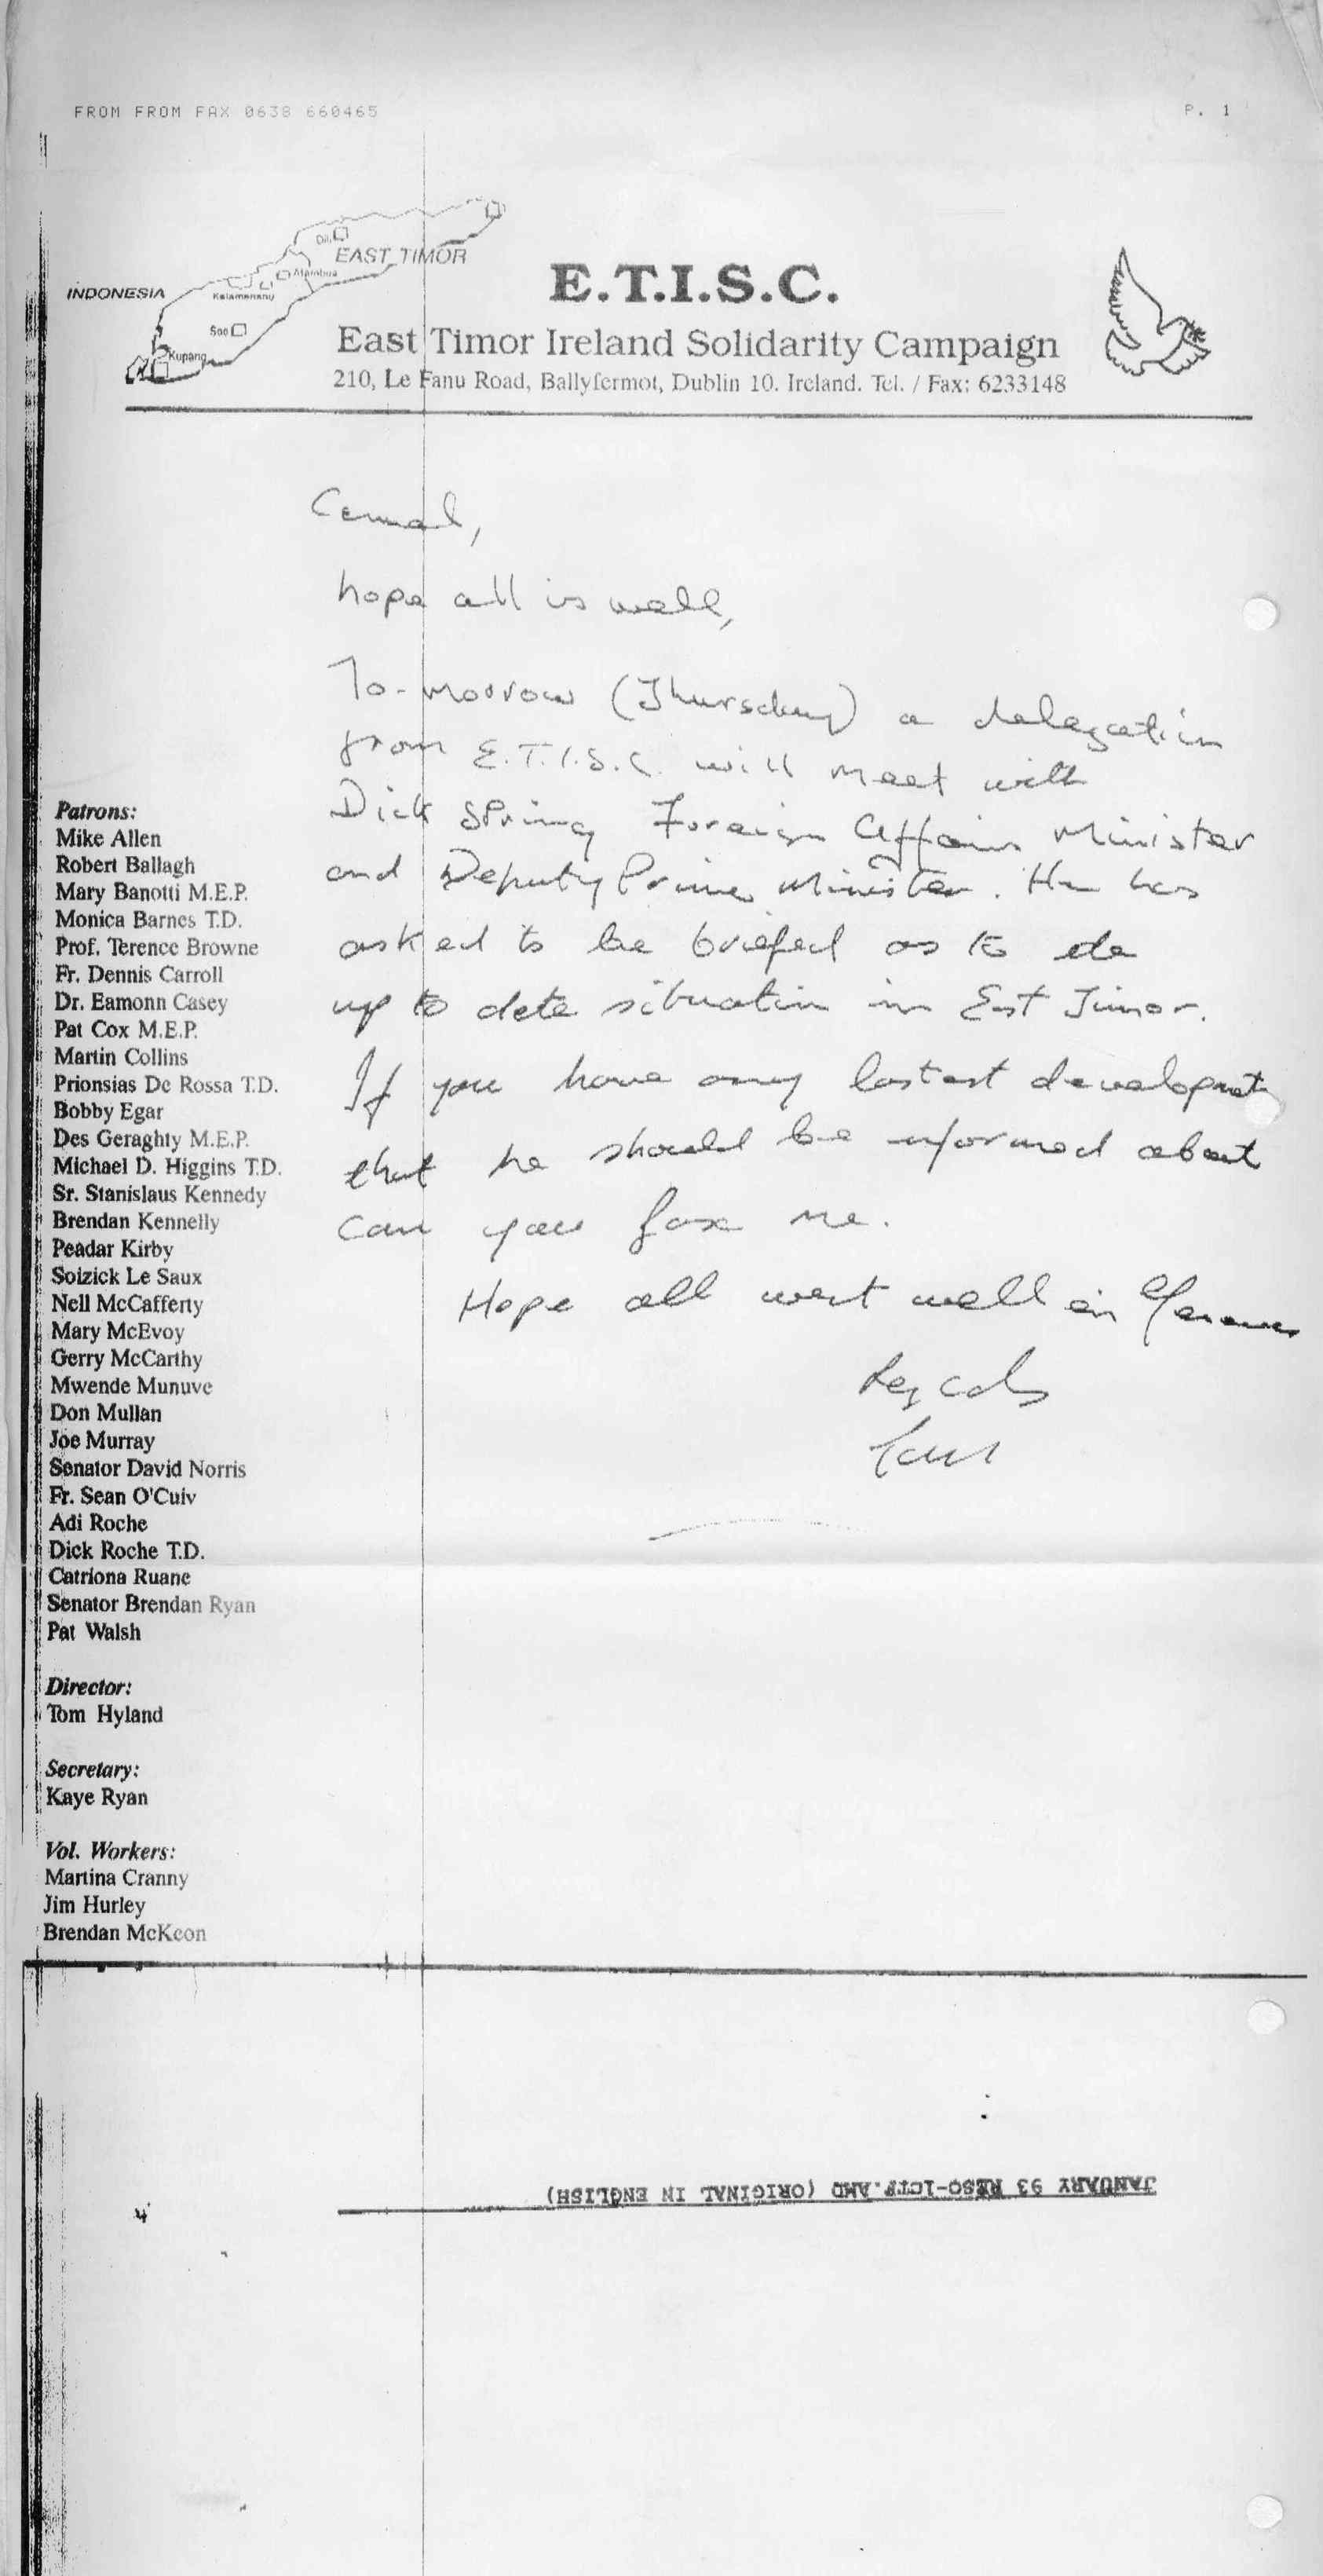 FROM FROM FAX 0638 660465 P. 1
Dili
EAST TIMOR
Atambua
INDONESIA
Soe
Kupang
E.T.I.S.C.
East Timor Ireland Solidarity Campaign
210, Le Fanu Road, Ballyfermot, Dublin 10. Ireland. Tel. / Fax: 6233148
hope all is well,
To-morrow (Thursday) a delegation
from E.T.I.S.C. will meet with
Dick Spring Foreign Affairs Minister
and Deputy Prime Minister. He has
asked to be briefed as to de
up to date situation in East Timor.
If you have any lastest
that he should be informed about
can you fax me.
Hope all went well in
Regards
Tom
Patrons:
Mike Allen
Robert Ballagh
Mary Banotti M.E.P.
Monica Barnes T.D.
Prof. Terence Browne
Fr. Dennis Carroll
Dr. Eamonn Casey
Pat Cox M.E.P.
Martin Collins
Prionsias De Rossa T.D.
Bobby Egar
Des Geraghty M.E.P.
Michael D. Higgins T.D.
Sr. Stanislaus Kennedy
Brendan Kennelly
Peadar Kirby
Soizick Le Saux
Nell McCafferty
Mary McEvoy
Gerry McCarthy
Mwende Munuve
Don Mullan
Joe Murray
Senator David Norris
Fr. Sean O'Cuiv
Adi Roche
Dick Roche T.D.
Catriona Ruane
Senator Brendan Ryan
Pat Walsh
Director:
Tom Hyland
Secretary:
Kaye Ryan
Vol. Workers:
Martina Cranny
Jim Hurley
Brendan McKeon
JANUARY 93 RESO-ICTF.AMD (ORIGINAL IN ENGLISH)